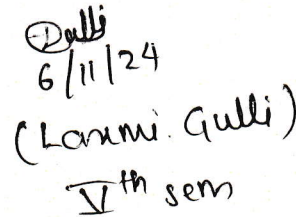 6/11/24
(Laxmi. Gulli)
Vth sem